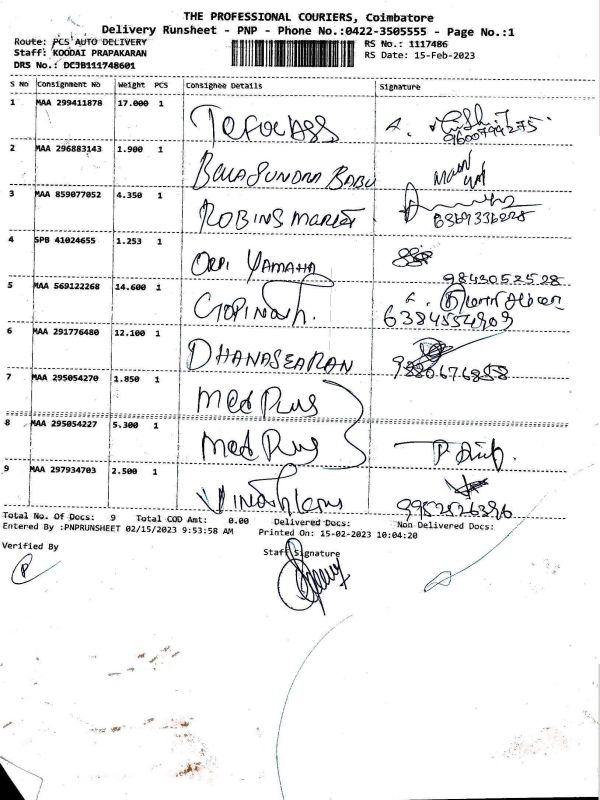 THE PROFESSIONAL COURIERS, Coimbatore
Delivery Runsheet - PNP - Phone No.:0422-3505555 - Page No.:1
Route: PCS AUTO DELIVERY RS No.: 1117486
Staff: KOODAI PRAPAKARAN RS Date: 15-Feb-2023
DRS No.: DC3B111748601
S No Consignment No Weight PCS Consignee Details Signature
1 MAA 299411878 17.000 1
9600799275
2 MAA 296883143 1.900 1 BALASUNDRA BABU
3 MAA 859077052 4.350 1 ROBINS MARKET
4 SPB 41024655 1.253 1 ORPI YAMAHA
9843052528
5 MAA 569122268 14.600 1 GOPINATH.
6384554909
6 MAA 291776480 12.100 1 DHANASEARAN
9880676858
7 MAA 295054270 1.850 1 Med Plus
8 MAA 295054227 5.300 1 Med Plus
9 MAA 297934703 2.500 1
9952526396
Total No. Of Docs: 9 Total COD Amt: 0.00 Delivered Docs: Non Delivered Docs:
Entered By :PNPRUNSHEET 02/15/2023 9:53:58 AM Printed On: 15-02-2023 10:04:20
Verified By Staff Signature